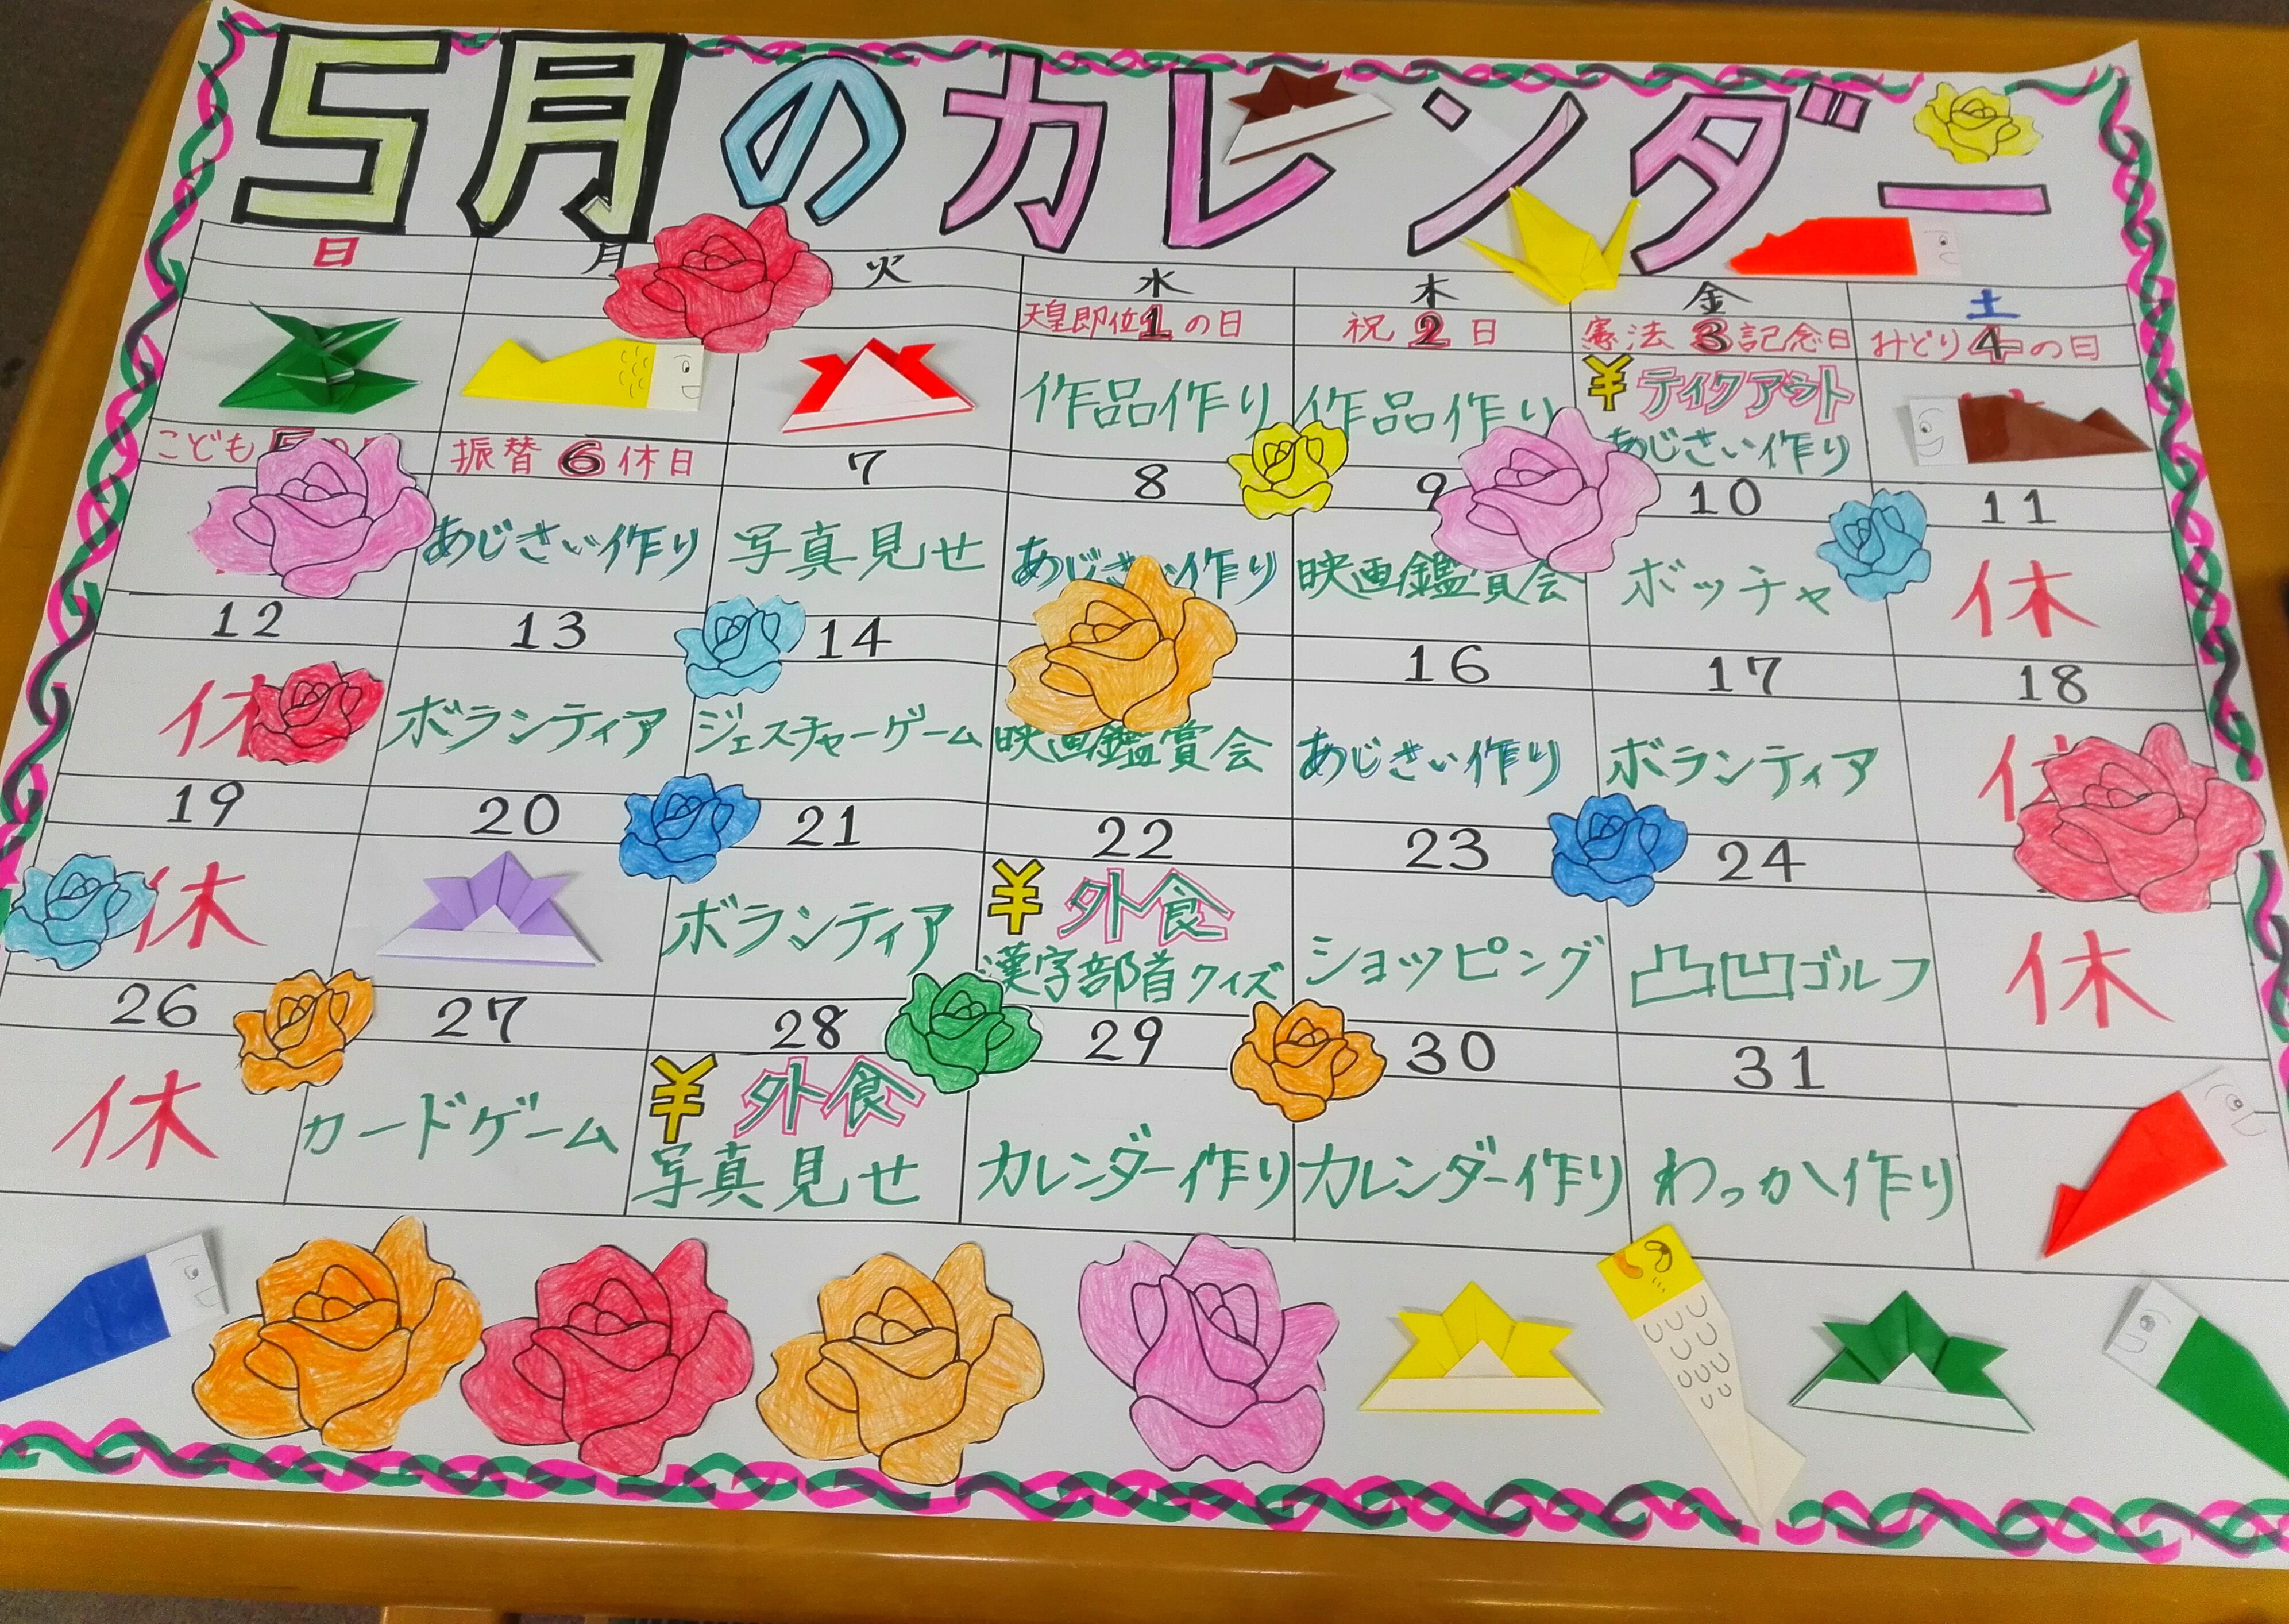 5月のカレンダー
日 月 火 水 木 金 土
天皇即位1の日 祝2日 憲法3記念日 みどり4の日
作品作り 作品作り ¥ テイクアウト
あじさい作り
こども 振替6休日 7 8 9 10 11
あじさい作り 写真見せ あじさい作り 映画鑑賞会 ボッチャ 休
12 13 14 16 17 18
休 ボランティア ジェスチャーゲーム 映画鑑賞会 あじさい作り ボランティア 休
19 20 21 22 23 24
休 ボランティア ¥ 外食 ショッピング 凸凹ゴルフ 休
漢字部首クイズ
26 27 28 29 30 31
休 カードゲーム ¥ 外食 カレンダー作り カレンダー作り わっか作り
写真見せ